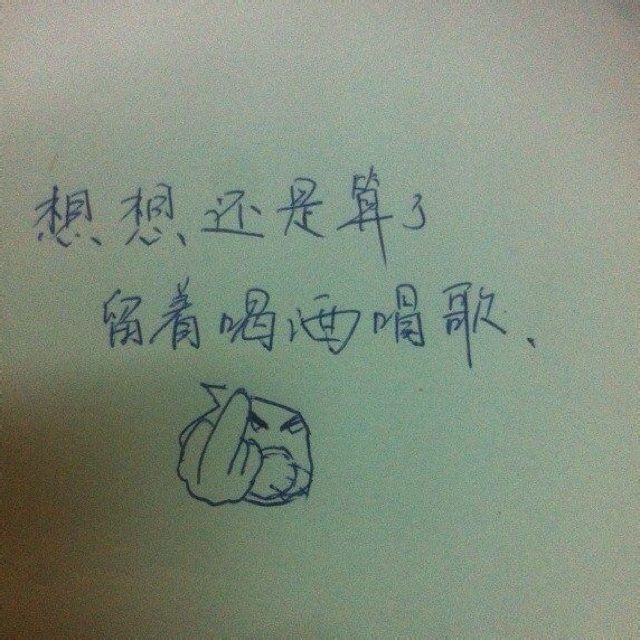 想想还是算了
留着喝酒唱歌、